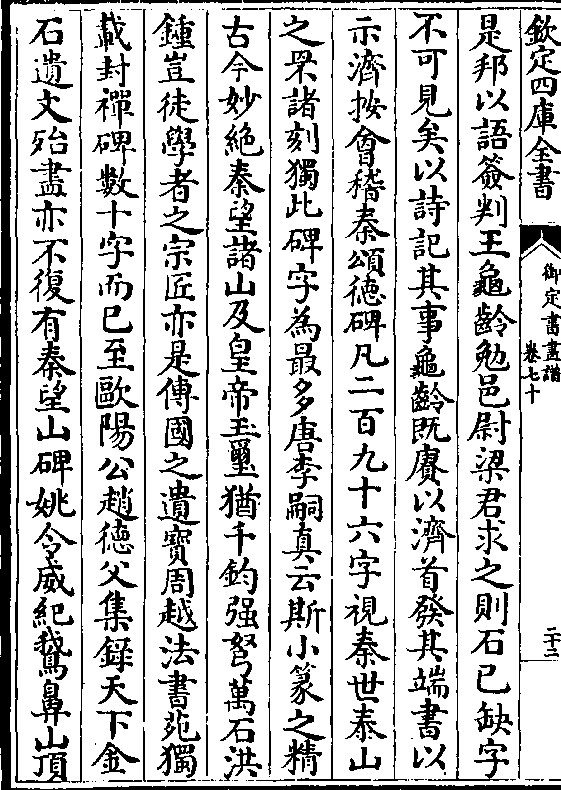 欽定四庫全書
御定書畫譜
卷七十
二十二
是邦以語簽判王龜齡勉邑尉梁君求之則石已缺字
不可見矣以詩記其事龜齡既賡以濟首發其端書以
示濟按會稽秦頌德碑凡二百九十六字視秦世泰山
之罘諸刻獨此碑字為最多唐李嗣真云斯小篆之精
古今妙絕秦望諸山及皇帝玉璽猶千鈞强弩萬石洪
鍾豈徒學者之宗匠亦是傳國之遺寶周越法書苑獨
載封禪碑數十字而已至歐陽公趙德父集録天下金
石遺文殆盡亦不復有秦望山碑姚令威紀鵞鼻山頂